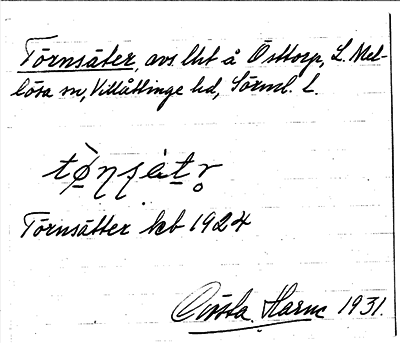 Törnsäter, avs lht å Östtorp, L. Mel-
lösa sn, Villåttinge hd, Sörml. l.
tø̀ṇṣètr̥
Törnsätter kb 1924
Gösta Harne 1931.